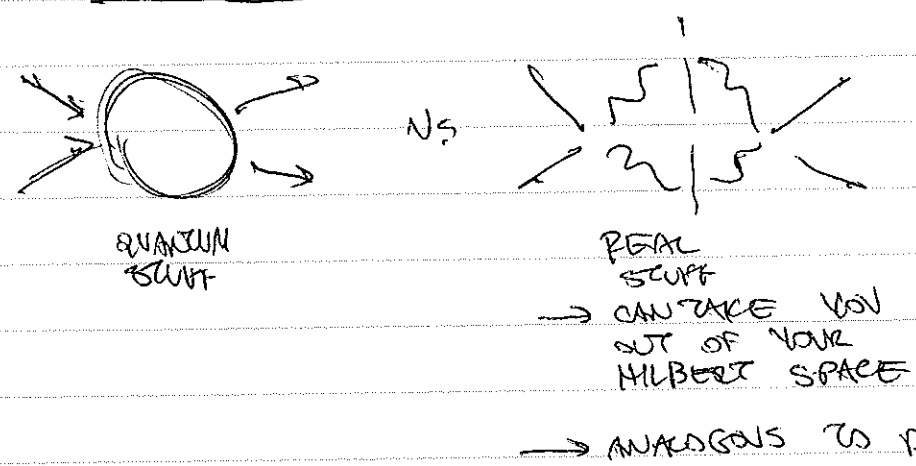 VS.
QUANTUM
STUFF
REAL
STUFF
→ CAN TAKE YOU
OUT OF YOUR
HILBERT SPACE
→ ANALOGOUS TO